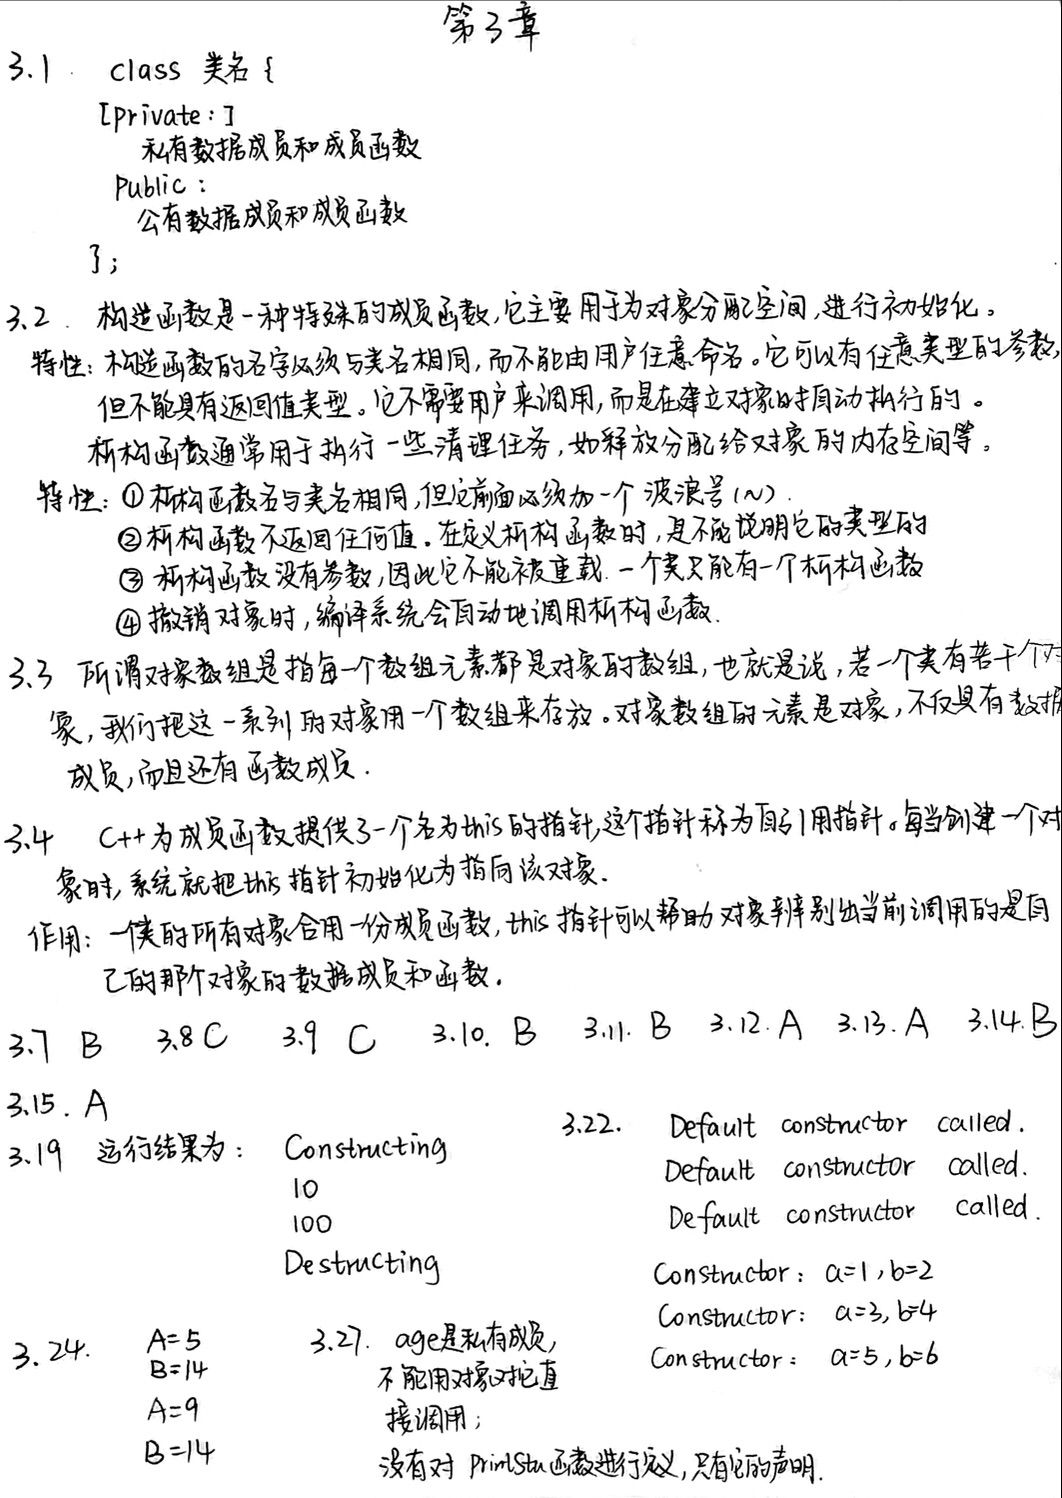 第3章
3.1 class 类名{
[private:]
私有数据成员和成员函数
Public:
公有数据成员和成员函数
};
3.2. 构造函数是一种特殊的成员函数,它主要用于为对象分配空间,进行初始化。
特性:构造函数的名字必须与类名相同,而不能由用户任意命名。它可以有任意类型的参数,
但不能具有返回值类型。它不需要用户来调用,而是在建立对象时自动执行的。
析构函数通常用于执行一些清理任务,如释放分配给对象的内存空间等。
特性:①析构函数名与类名相同,但它前面必须加一个波浪号(~).
②析构函数不返回任何值。在定义析构函数时,是不能说明它的类型的
③析构函数没有参数,因此它不能被重载.一个类只能有一个析构函数
④撤销对象时,编译系统会自动地调用析构函数.
3.3 所谓对象数组是指每一个数组元素都是对象的数组,也就是说,若一个类有若干个对
象,我们把这一系列的对象用一个数组来存放。对象数组的元素是对象,不仅具有数据
成员,而且还有函数成员.
3.4 C++为成员函数提供了一个名为this的指针,这个指针称为自引用指针。每当创建一个对
象时,系统就把this指针初始化为指向该对象.
作用:一个类的所有对象合用一份成员函数,this指针可以帮助对象辨别出当前调用的是自
己的那个对象的数据成员和函数.
3.7 B 3.8 C 3.9 C 3.10. B 3.11. B 3.12. A 3.13. A 3.14. B
3.15. A
3.19 运行结果为: Constructing
10
100
Destructing
3.22. Default constructor called.
Default constructor called.
Default constructor called.
Constructor: a=1,b=2
Constructor: a=3,b=4
Constructor: a=5,b=6
3.24. A=5
B=14
A=9
B=14
3.27. age是私有成员,
不能用对象对它直
接调用;
没有对 PrintStu函数进行定义,只有它的声明.